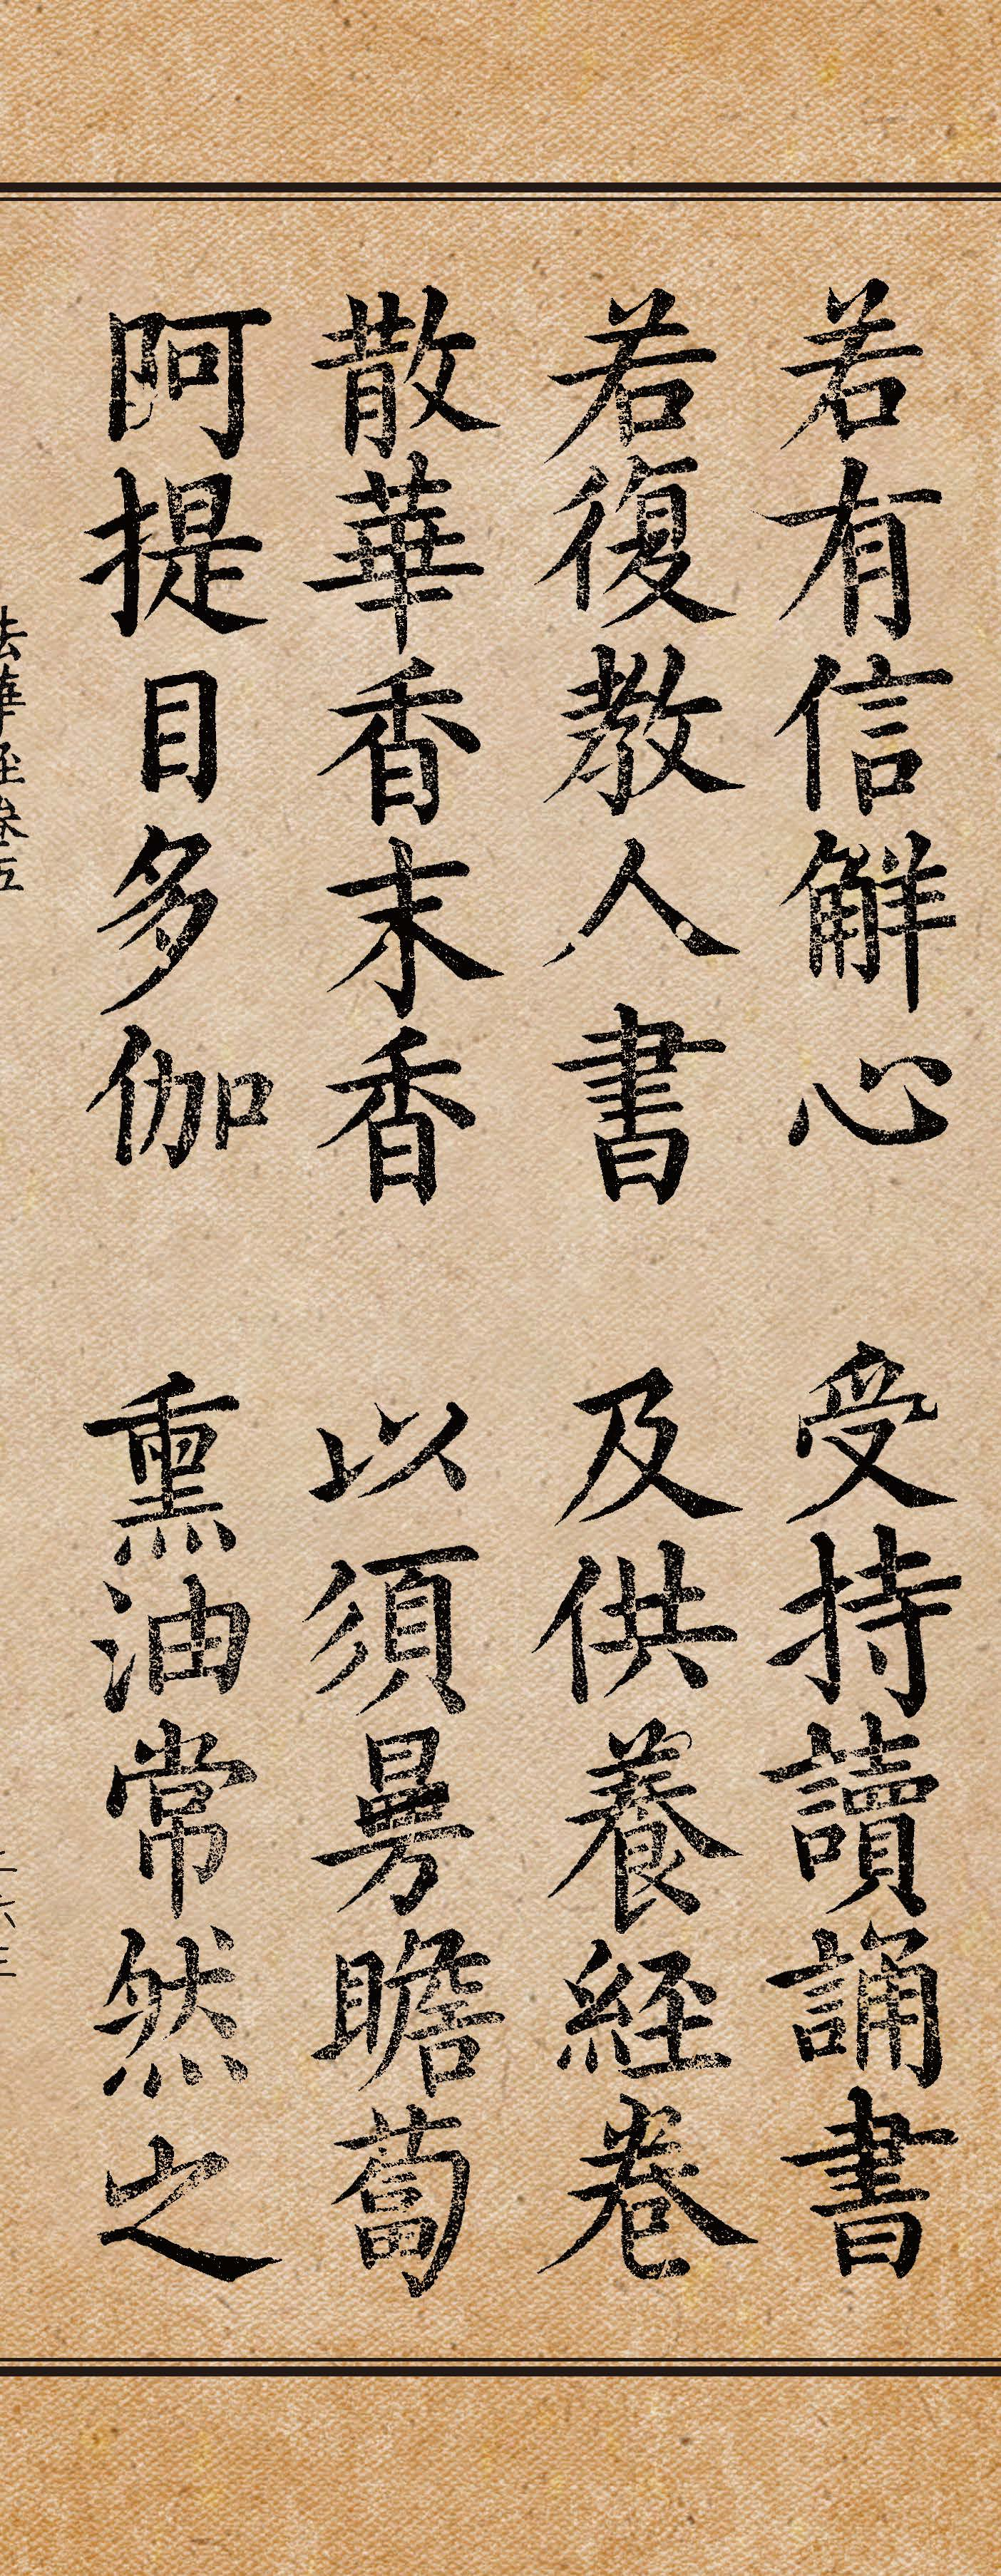 若有信解心 受持讀誦書
若復教人書 及供養経巻
散華香末香 以須曼瞻蔔
阿提目多伽 熏油常然之
法華経巻五
二六三